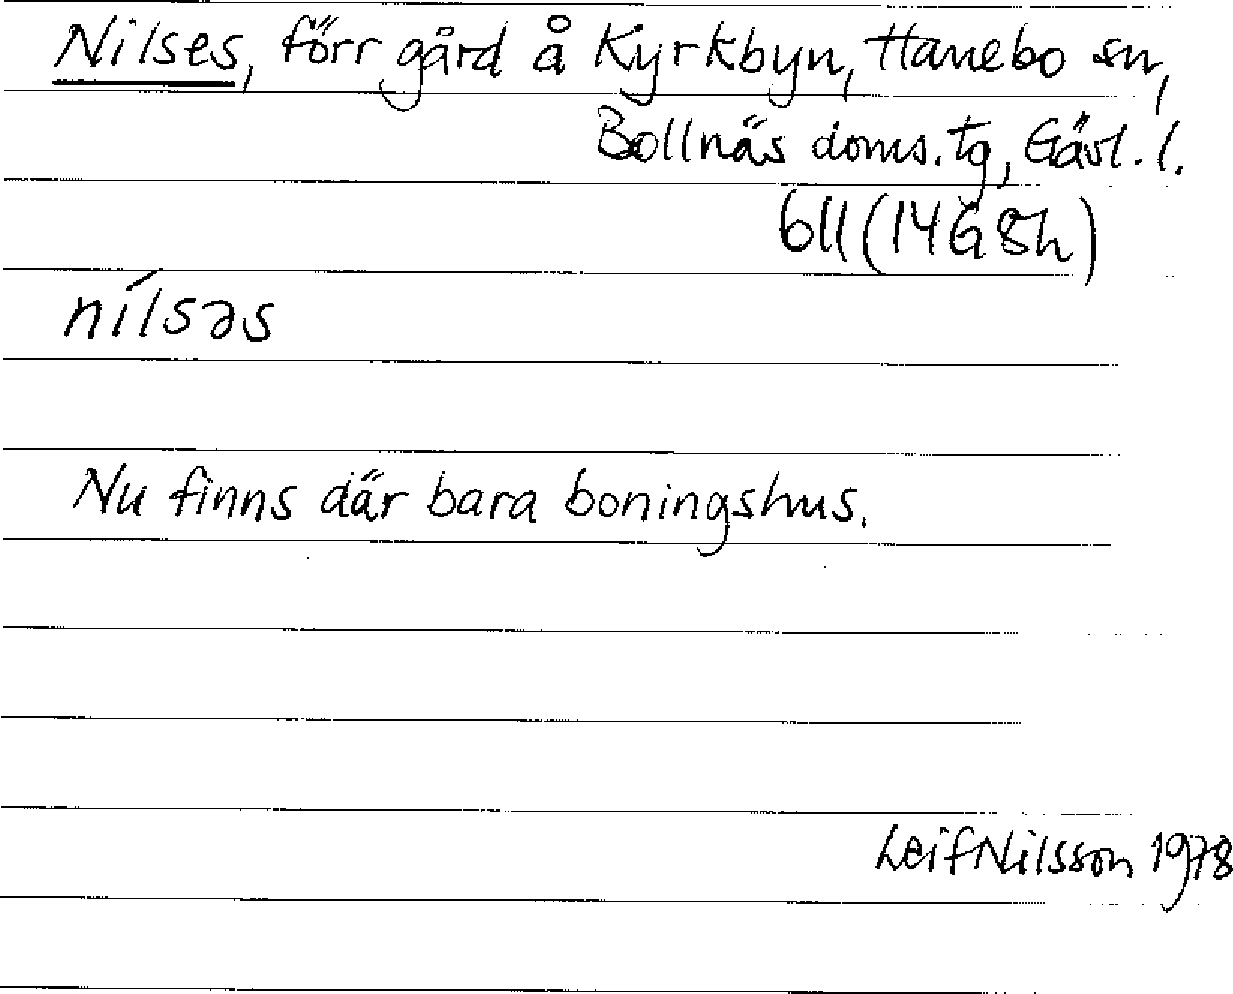 Nilses, förr gård å Kyrkbyn, Hanebo sn,
Bollnäs doms. tg, Gävl. l.
611 (14G 8h)
nílsəs
Nu finns där bara boningshus.
Leif Nilsson 1978